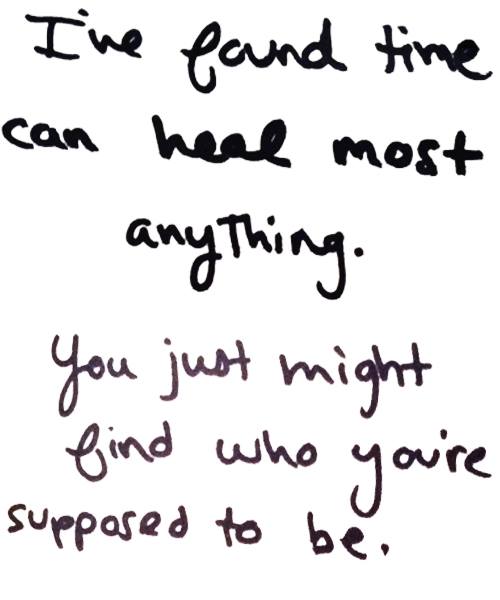 I've found time
can heal most
anything.
You just might
find who you're
supposed to be.